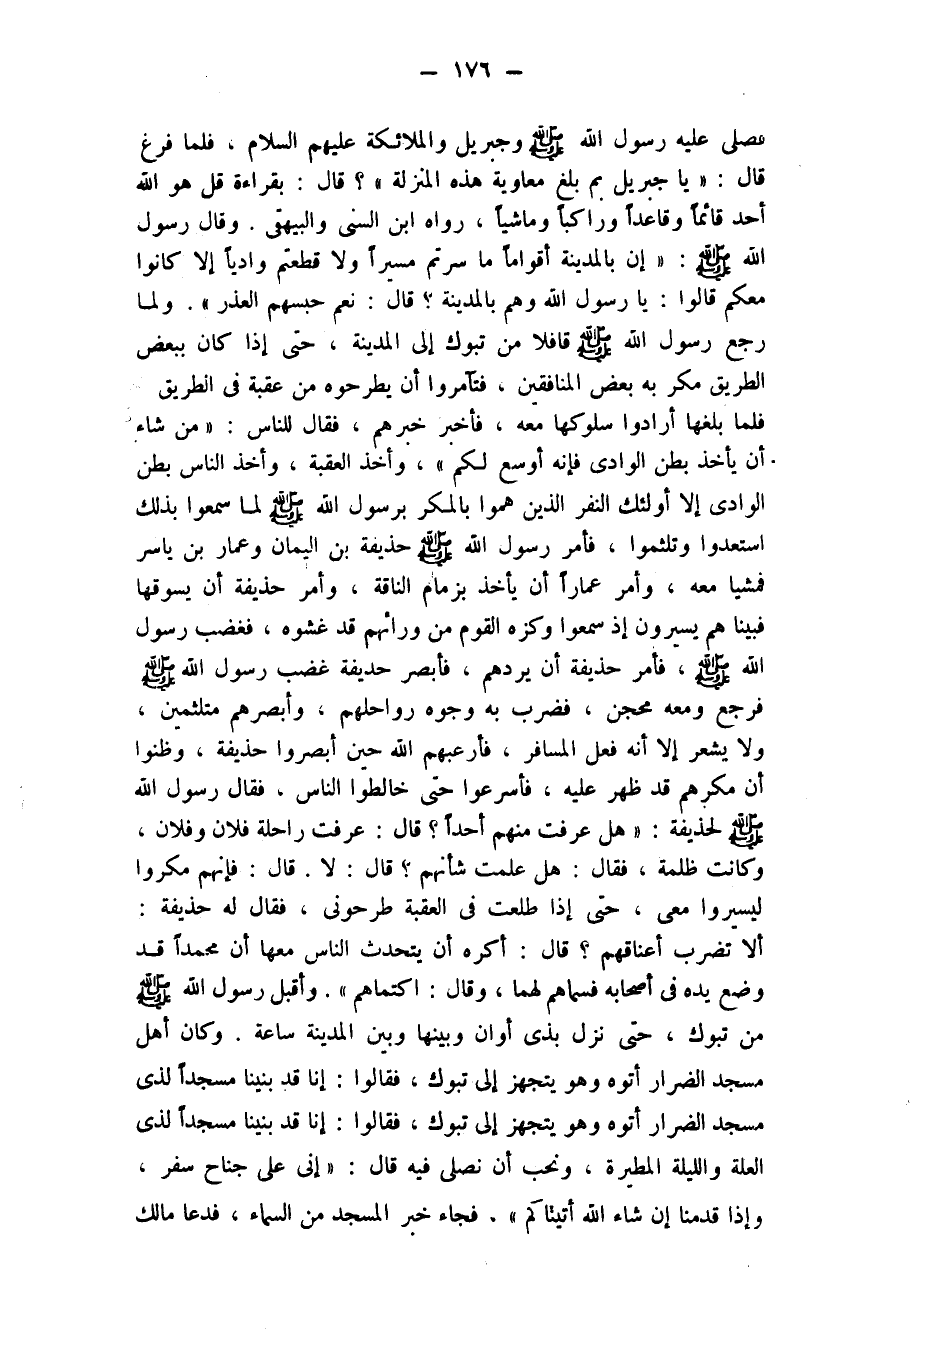 — ١٧٦ —
فصلى عليه رسول الله ﷺ وجبريل والملائكة عليهم السلام ، فلما فرغ
قال : « يا جبريل بم بلغ معاوية هذه المنزلة » ؟ قال : بقراءة قل هو الله
أحد قائماً وقاعداً وراكباً وماشياً ، رواه ابن السنى والبيهقى . وقال رسول
الله ﷺ : « إن بالمدينة أقواماً ما سرتم مسيراً ولا قطعتم وادياً إلا كانوا
معكم قالوا : يا رسول الله وهم بالمدينة ؟ قال : نعم حبسهم العذر » . ولما
رجع رسول الله ﷺ قافلا من تبوك إلى المدينة ، حتى إذا كان ببعض
الطريق مكر به بعض المنافقين ، فتآمروا أن يطرحوه من عقبة فى الطريق
فلما بلغها أرادوا سلوكها معه ، فأخبر خبرهم ، فقال للناس : « من شاء
أن يأخذ بطن الوادى فإنه أوسع لكم » ، وأخذ العقبة ، وأخذ الناس بطن
الوادى إلا أولئك النفر الذين هموا بالمكر برسول الله ﷺ لما سمعوا بذلك
استعدوا وتلثموا ، فأمر رسول الله ﷺ حذيفة بن اليمان وعمار بن ياسر
فمشيا معه ، وأمر عماراً أن يأخذ بزمام الناقة ، وأمر حذيفة أن يسوقها
فبينا هم يسيرون إذ سمعوا وكزه القوم من ورائهم قد غشوه ، فغضب رسول
الله ﷺ ، فأمر حذيفة أن يردهم ، فأبصر حديفة غضب رسول الله ﷺ
فرجع ومعه محجن ، فضرب به وجوه رواحلهم ، وأبصرهم متلثمين ،
ولا يشعر إلا أنه فعل المسافر ، فأرعبهم الله حين أبصروا حذيفة ، وظنوا
أن مكرهم قد ظهر عليه ، فأسرعوا حتى خالطوا الناس . فقال رسول الله
ﷺ لحذيفة : « هل عرفت منهم أحداً ؟ قال : عرفت راحلة فلان وفلان ،
وكانت ظلمة ، فقال : هل علمت شأنهم ؟ قال : لا . قال : فإنهم مكروا
ليسيروا معى ، حتى إذا طلعت فى العقبة طرحونى ، فقال له حذيفة :
ألا تضرب أعناقهم ؟ قال : أكره أن يتحدث الناس معها أن محمداً قد
وضع يده فى أصحابه فسماهم لهما ، وقال : اكتماهم » . وأقبل رسول الله ﷺ
من تبوك ، حتى نزل بذى أوان وبينها وبين المدينة ساعة . وكان أهل
مسجد الضرار أتوه وهو يتجهز إلى تبوك ، فقالوا : إنا قد بنينا مسجداً لذى
مسجد الضرار أتوه وهو يتجهز إلى تبوك ، فقالوا : إنا قد بنينا مسجداً لذى
العلة والليلة المطيرة ، ونحب أن نصلى فيه قال : « إنى على جناح سفر ،
وإذا قدمنا إن شاء الله أتيناكم » . فجاء خبر المسجد من السماء ، فدعا مالك